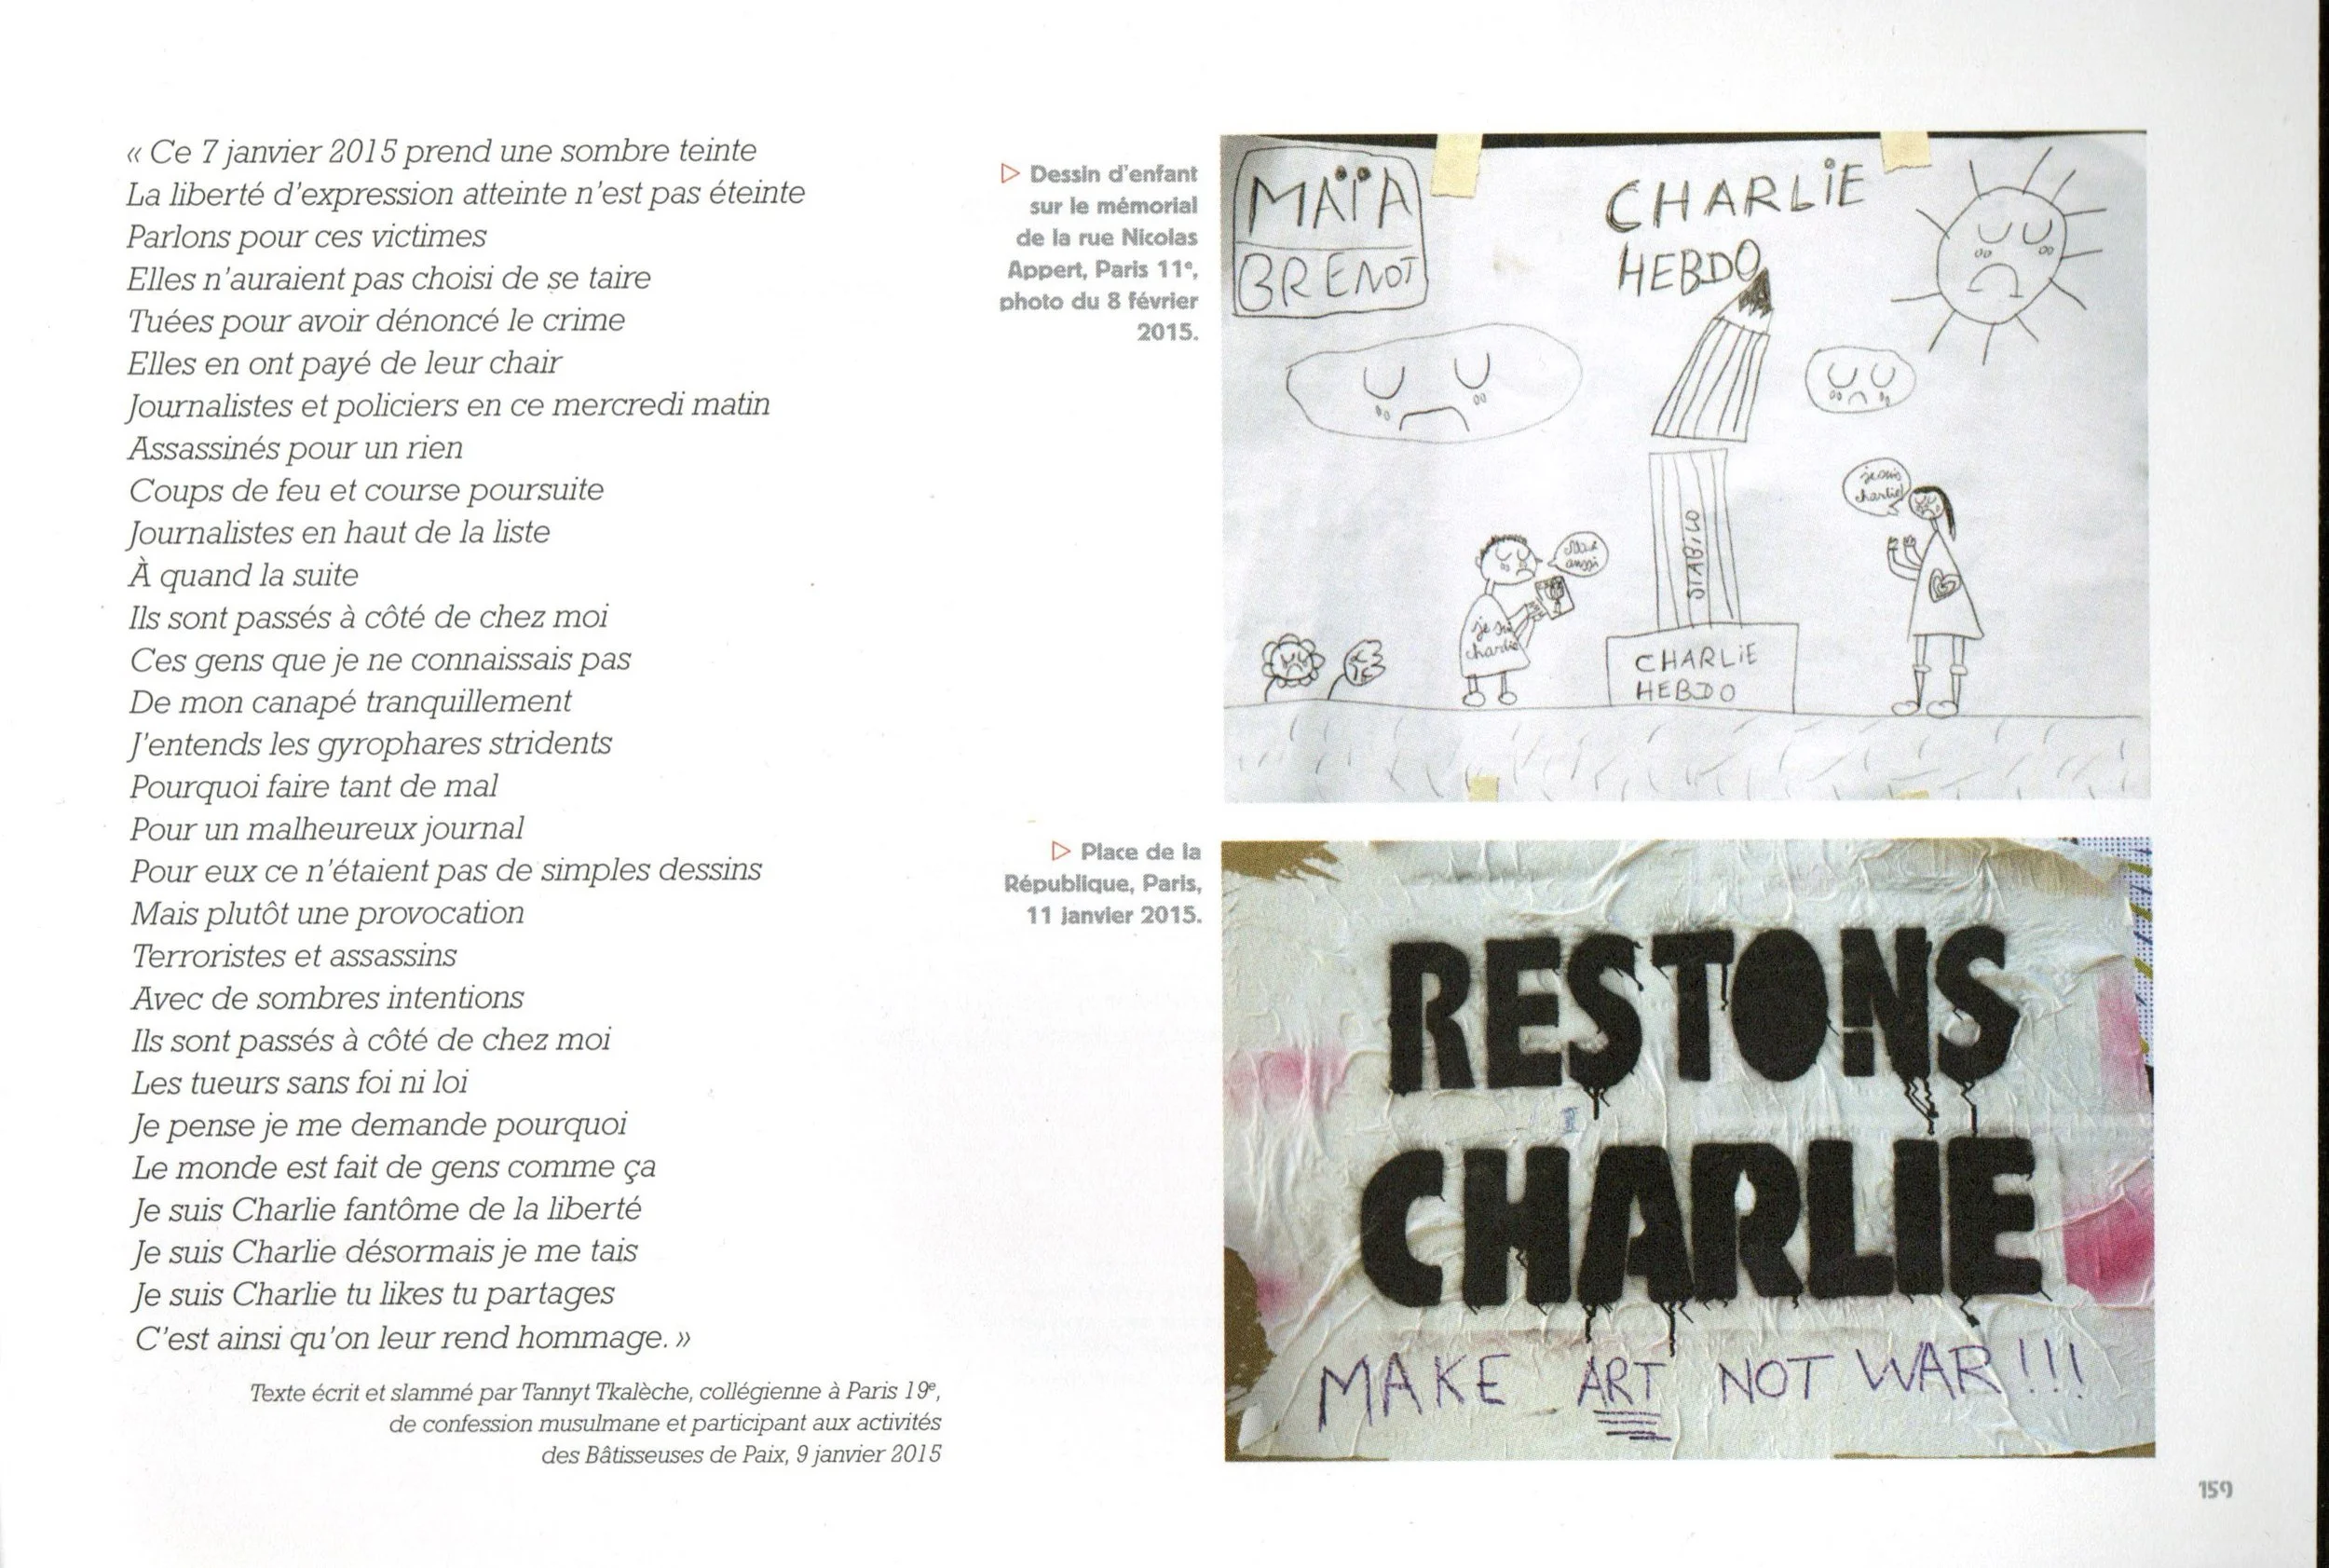 « Ce 7 janvier 2015 prend une sombre teinte
La liberté d'expression atteinte n'est pas éteinte
Parlons pour ces victimes
Elles n'auraient pas choisi de se taire
Tuées pour avoir dénoncé le crime
Elles en ont payé de leur chair
Journalistes et policiers en ce mercredi matin
Assassinés pour un rien
Coups de feu et course poursuite
Journalistes en haut de la liste
À quand la suite
Ils sont passés à côté de chez moi
Ces gens que je ne connaissais pas
De mon canapé tranquillement
J'entends les gyrophares stridents
Pourquoi faire tant de mal
Pour un malheureux journal
Pour eux ce n'étaient pas de simples dessins
Mais plutôt une provocation
Terroristes et assassins
Avec de sombres intentions
Ils sont passés à côté de chez moi
Les tueurs sans foi ni loi
Je pense je me demande pourquoi
Le monde est fait de gens comme ça
Je suis Charlie fantôme de la liberté
Je suis Charlie désormais je me tais
Je suis Charlie tu likes tu partages
C'est ainsi qu'on leur rend hommage. »
Texte écrit et slammé par Tannyt Tkalèche, collégienne à Paris 19e,
de confession musulmane et participant aux activités
des Bâtisseuses de Paix, 9 janvier 2015
▷ Dessin d'enfant
sur le mémorial
de la rue Nicolas
Appert, Paris 11e,
photo du 8 février
2015.
MAÏA
BRENOT
CHARLiE
HEBDO
je suis
charlie!
aussi
je sui
charlie
STABILO
CHARLiE
HEBDO
▷ Place de la
République, Paris,
11 janvier 2015.
RESTONS
CHARLIE
MAKE ART NOT WAR!!!
159